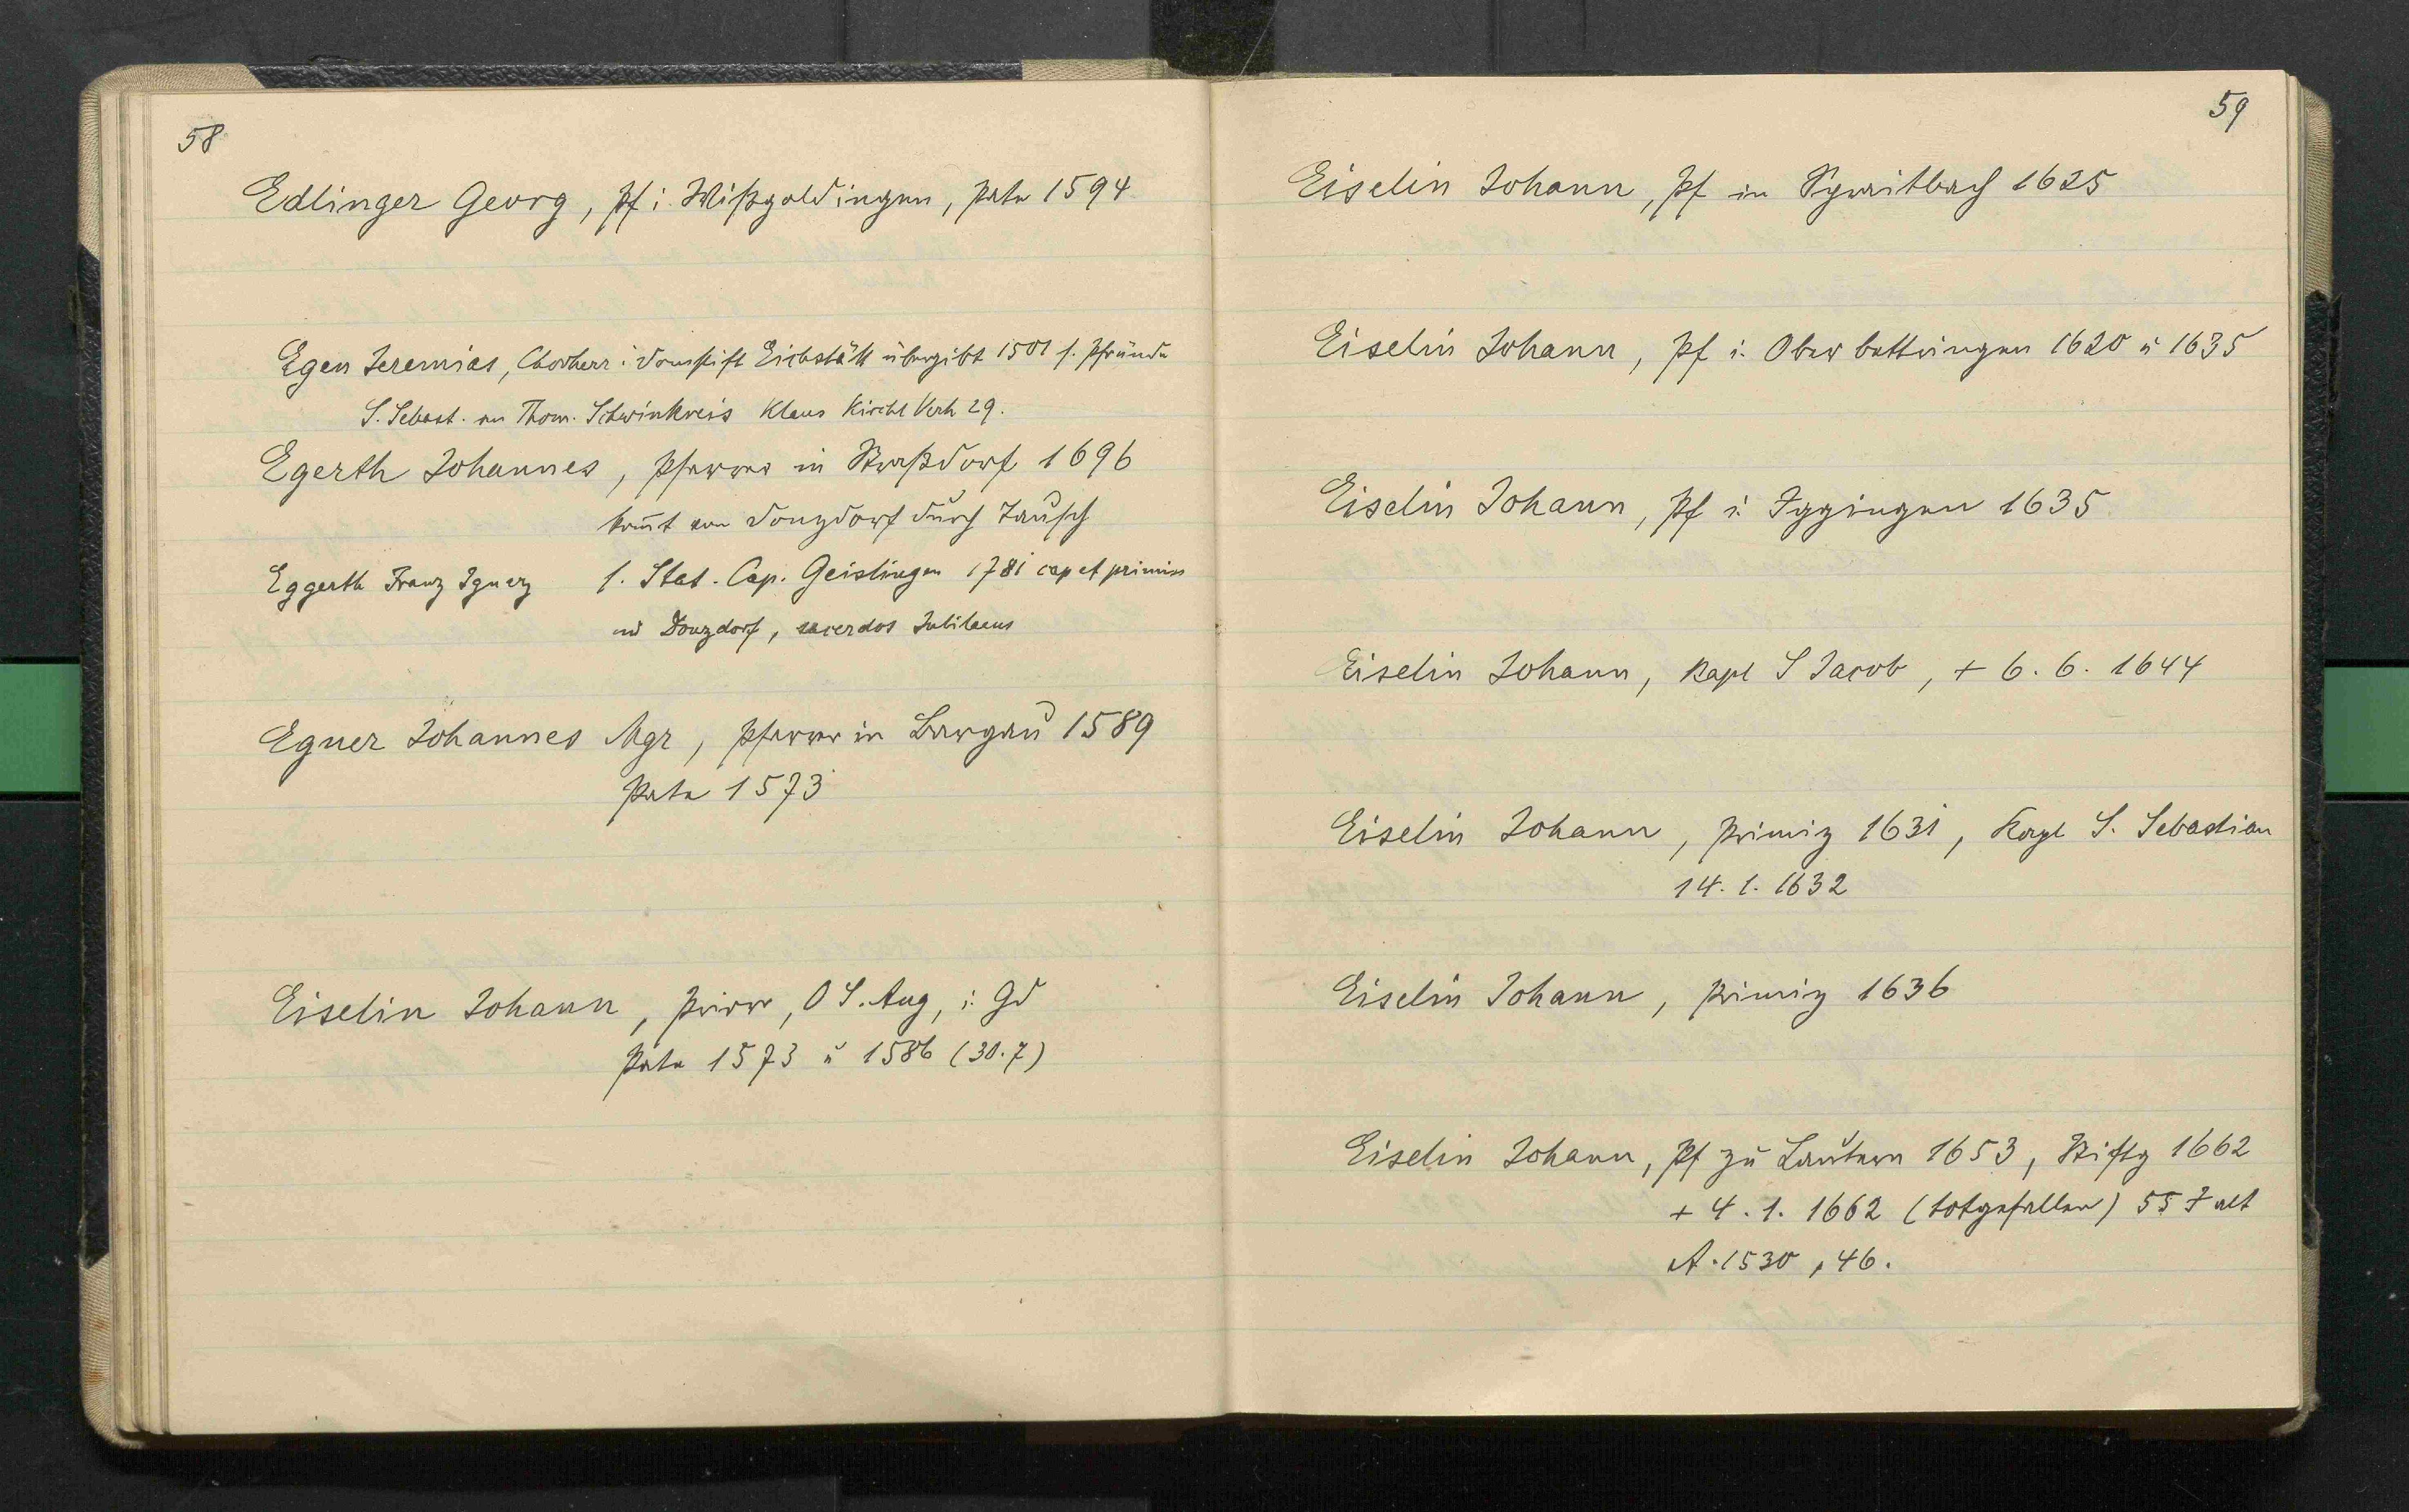 58
Edlinger Georg, Pf i. Wißgoldingen, Pate 1594
Egen Jeremias, Chorherr i Domstift Eichstätt übergibt 1501 s. Pfründe
S. Sebast. an Thom. Schwinkreis Klaus Kirchl Verh 29.
Egerth Johannes, Pfarrer in Straßdorf 1696
kom̄t von Donzdorf durch Tausch
Eggerth Franz Ignaz s. Stat. Cap. Geislingen 1781 cap et primiss
in Donzdorf, sacerdos Jubilaeus
Egner Johannes Mgr, Pfarrer in Bargau 1589
Pate 1573
Eiselin Johann, Prior, O S. Aug, i. Gd
Pate 1573 u 1586 (30.7)
59
Eiselin Johann, Pf in Spraitbach 1625
Eiselin Johann, Pf i. Oberbettringen 1620 u 1635
Eiselin Johann, Pf i. Iggingen 1635
Eiselin Johann, Kapl S Jacob, + 6. 6. 1644
Eiselin Johann, Primiz 1631, Kapl S. Sebastian
14. 1. 1632
Eiselin Johann, Primiz 1636
Eiselin Johann, Pf zu Lautern 1653, Stiftg 1662
+ 4. 1. 1662 (totgefallen) 55 J alt
A. 1530, 46.